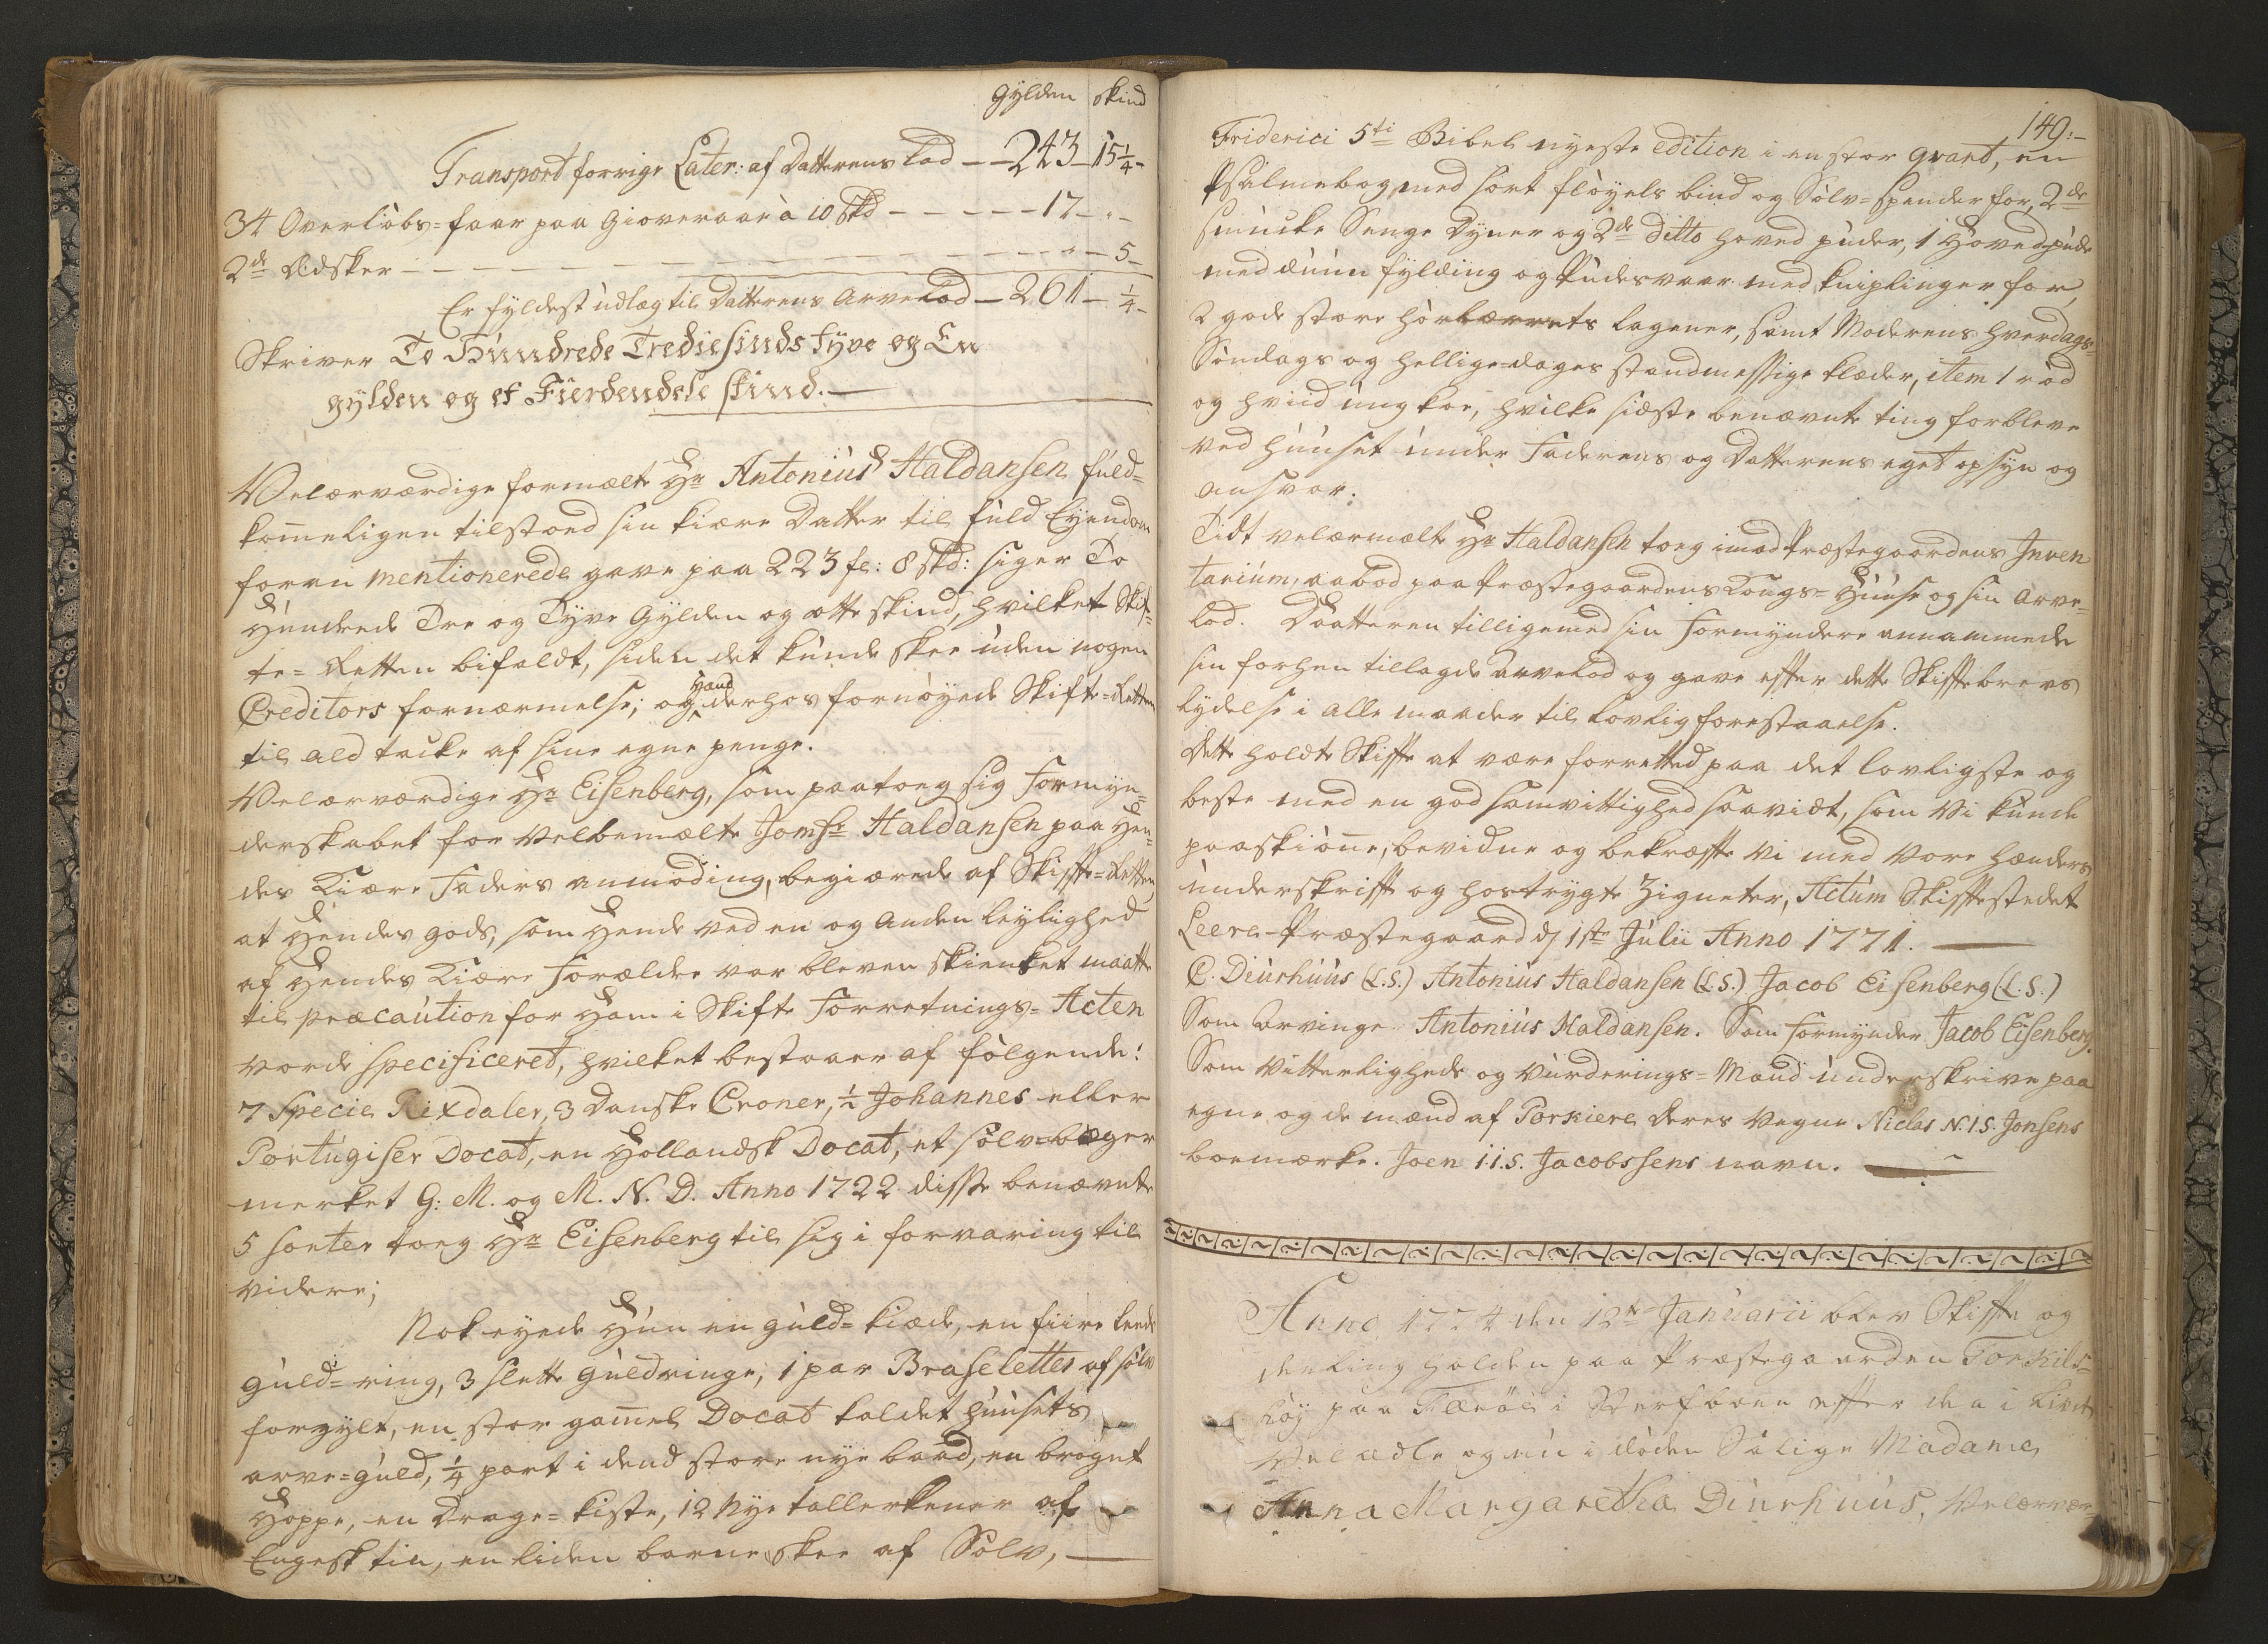 Gylden skind
Transport forrige Later: af Datterens Lod — — 243 — 15 1/4 —
34 Overløbs=faar paa Gioveraae à 10 skd — — — — — 17 — „ —
2de Øedsker — — — — — — — — „ — 5 —
Er fyldest udlæg til Datterens Arvelod — 261 — 1/4 —
Skriver To Hundrede Trediesinds Tyve og En
gylden og et Fierdendele skind. —
Velærværdige formælte Hr Antonius Haldansen fuld=
kom̄eligen tilstoed sin kiære Datter til fuld Eyendom
forrn mentionerede gave paa 223 fl: 8 skd: siger To
Hundrede Tre og Tyve Gylden og otte skind, hvilket Skif=
te=Retten bifaldt, siden det kunde skee uden nogen
Creditors fornærmelse; og hand derhos fornøyede Skifte=Retten
til ald tacke af sine egne penge.
Velærværdige Hr Eisenberg, som paatoeg sig Formyn=
derskabet for Velbemælte Jomfr Haldansen paa Hen=
des Kiære Faders anmoding, begiærede af Skifte=Retten,
at Hendes gods, som Hende ved en og anden leylighed
af Hendes Kiære Forældre var bleven skienket maatte
til præcaution for Ham i Skifte Forretnings=Acten
vorde specificeret, hvilket bestaaer af følgende:
7 Specie Rixdaler, 3 Danske Croner, 1/2 Johannes eller
Portugiser Docat, en Hollandsk Docat, et sølv=bæger
merket G: M. og M. N. D. Anno 1722. disse benævnte
5 sorter toeg Hr Eisenberg til sig i forvaring til
videre;
Nok eyede Hun en guld=kiæde, en fiire leede
guld=ring, 3 slette guldringe, 1 par Braseletter af sølv
forgylt, en stor gam̄el Docat kaldet huusets
arve=guld, 1/4 part i dend store nye baad, en broget
Hoppe, en Drage=kiste, 12 Nye tallerkener af
Engelsk tin, en liden barne skee af Sølv, —
149:—
Friderici 5ti Bibel nyeste edition i en stor qvart, en
Psalmebog med sort fløyels bind og Sølv=spender for, 2de
smucke Senge Dyner og 2de ditto hoved puder, 1 Hovedpude
med duun fylding og Pudesvaar med kniplinger for,
2 gode store hørlærrets lagener, samt Moderens hverdags=
Søndags og hellige=dages standmessige klæder, item 1 rød
og hviid ung koe, hvilke sidste benævnte ting forbleve
ved huuset under Faderens og Datterens eget opsyn og
ansvar.
Tidt velærmælte Hr Haldansen toeg imod Præstegaardens Inven
tarium, aabod paa Præstegaardens Kongs=Huuse og sin Arve=
lod. Daatteren tilligemed sin Formyndere annammede
sin forhen tillagde Arvelod og gave efter dette Skiftebrevs
lydelse i alle maader til lovlig forestaaelse.
Dette holdte Skifte at være forretted paa det lovligste og
beste med en god samvittighed saavidt, som Vi kunde
paaskiøn̄e, bevidne og bekræfte vi med vore hænders
underskrift og hostrygte Zigneter, Actum Skiftestedet
Qeere-Præstegaard dj 1ste Julii Anno 1771. —
C. Diurhuus (L.S.) Antonius Haldansen (L.S.) Jacob Eisenberg (L.S.)
Som Arvinge Antonius Haldansen. Som Formynder Jacob Eisenberg.
Som Vitterligheds og Vurderings=Mænd underskrive paa
egne og de mænd af Porkiere deres vegne Niclas N.I.S. Jonsens
boemærke. Joen I.I.S. Jacobssens navn. —
Anno 1774 den 12te Januarii blev Skifte og
deeling holden paa Præstegaarden Torkils=
høj paa Færøe i Sterfboen efter den i Livet
Vel ædle og nu i døden Salige Madame
Anna Margaretha Diurhuus, Velærvær=